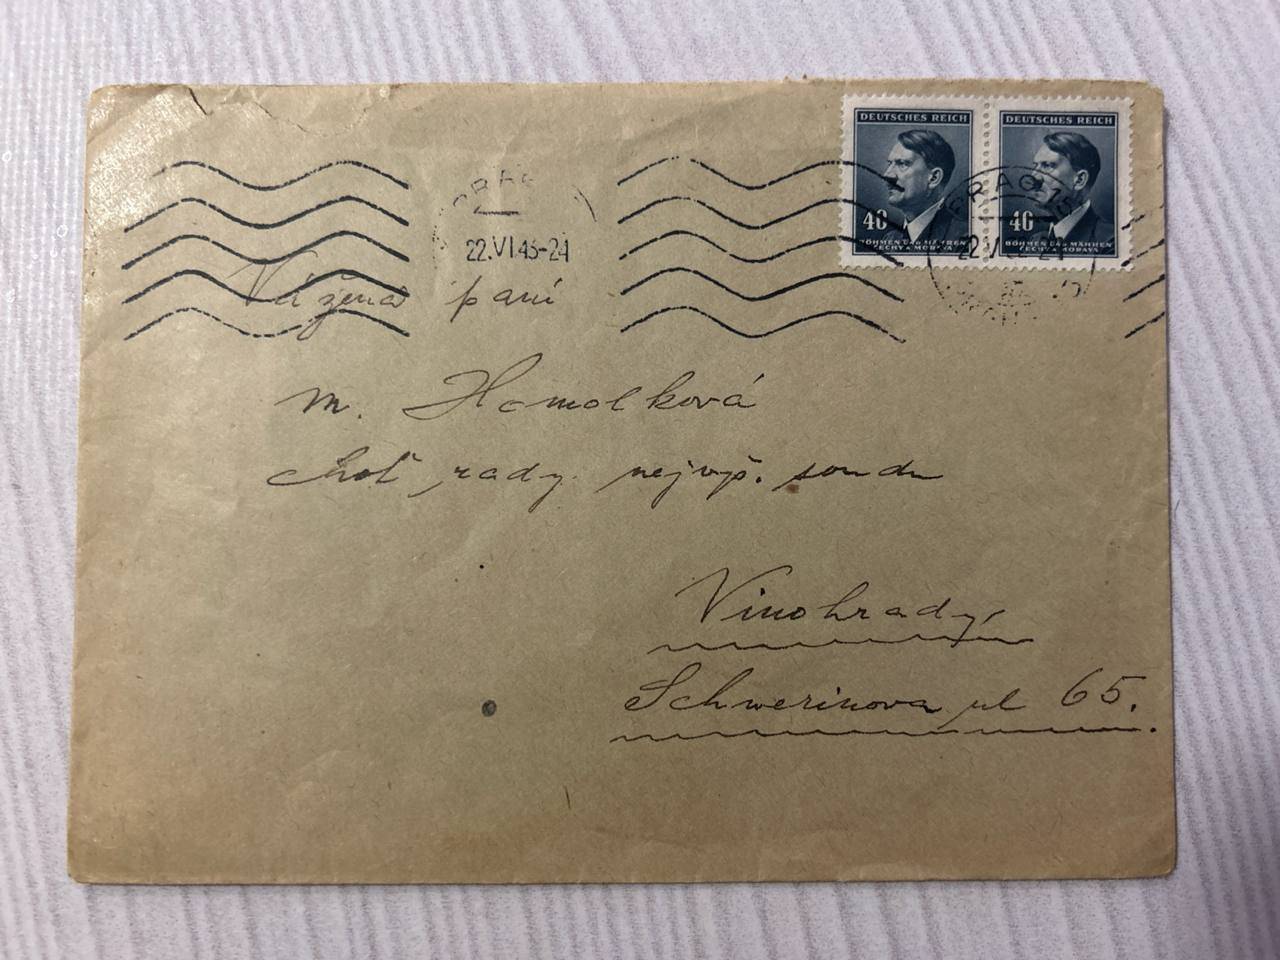 DEUTSCHES REICH DEUTSCHES REICH
40 40
BÖHMEN UND MÄHREN BÖHMEN UND MÄHREN
ČECHY A MORAVA ČECHY A MORAVA
PRAG
22.VI.43-24
PRAG 15
Vážená paní
M. Homolková
choť rady nejvyš. soudu
Vinohrady,
Schwerinova ul 65.